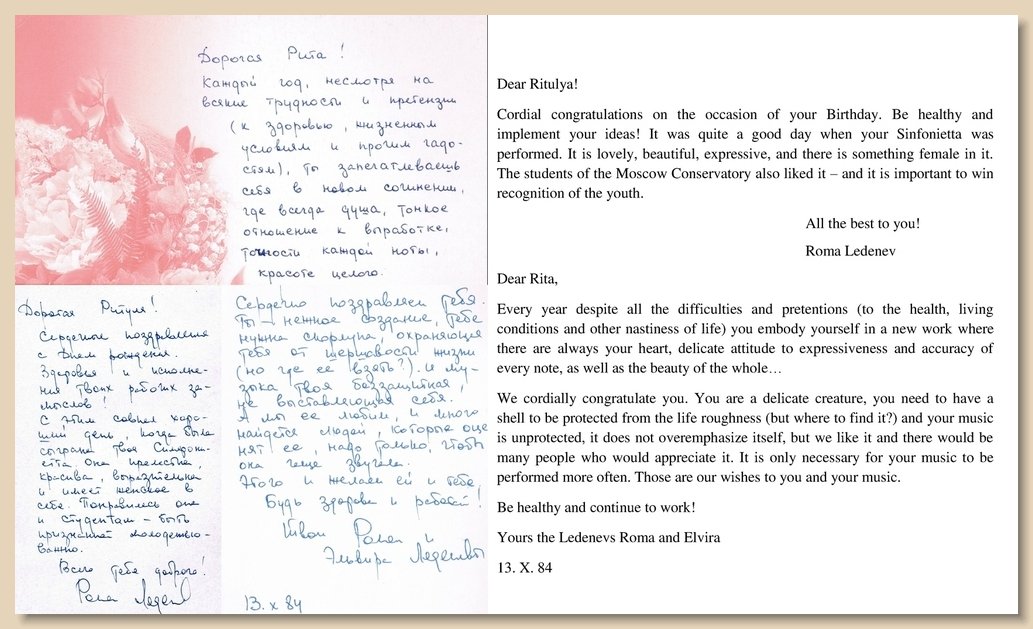 Дорогая Рита!
Каждый год, несмотря на
всякие трудности и претензии
(к здоровью, жизненным
условиям и прочим гадо-
стям), ты запечатлеваешь
себя в новом сочинении,
где всегда душа, тонкое
отношение к выработке,
точности каждой ноты,
красоте целого.
Дорогая Ритуля!
Сердечно поздравляем
с Днем рождения.
Здоровья и исполне-
ния твоих рабочих за-
мыслов!
С этим совпал хоро-
ший день, когда была
сыграна твоя Симфони-
етта. Она прелестна,
красива, выразительна
и имеет женское в
себе. Понравилась она
и студентам – быть
признанной молодежью –
важно.
Всего тебе доброго!
Рома Леден
Сердечно поздравляем тебя.
Ты – нежное создание, тебе
нужна скорлупа, охраняющая
тебя от шершавости жизни
(но где ее взять?). И му-
зыка твоя беззащитная,
не выставляющая себя.
А мы ее любим, и много
найдется людей, которые оце
нят ее, надо только, чтоб
она чаще звучала.
Этого и желаем ей и тебе.
Будь здорова и работай!
Твои Рома и
Эльвира Леденевы
13. x 84
Dear Ritulya!
Cordial congratulations on the occasion of your Birthday. Be healthy and
implement your ideas! It was quite a good day when your Sinfonietta was
performed. It is lovely, beautiful, expressive, and there is something female in it.
The students of the Moscow Conservatory also liked it – and it is important to win
recognition of the youth.
All the best to you!
Roma Ledenev
Dear Rita,
Every year despite all the difficulties and pretentions (to the health, living
conditions and other nastiness of life) you embody yourself in a new work where
there are always your heart, delicate attitude to expressiveness and accuracy of
every note, as well as the beauty of the whole…
We cordially congratulate you. You are a delicate creature, you need to have a
shell to be protected from the life roughness (but where to find it?) and your music
is unprotected, it does not overemphasize itself, but we like it and there would be
many people who would appreciate it. It is only necessary for your music to be
performed more often. Those are our wishes to you and your music.
Be healthy and continue to work!
Yours the Ledenevs Roma and Elvira
13. X. 84